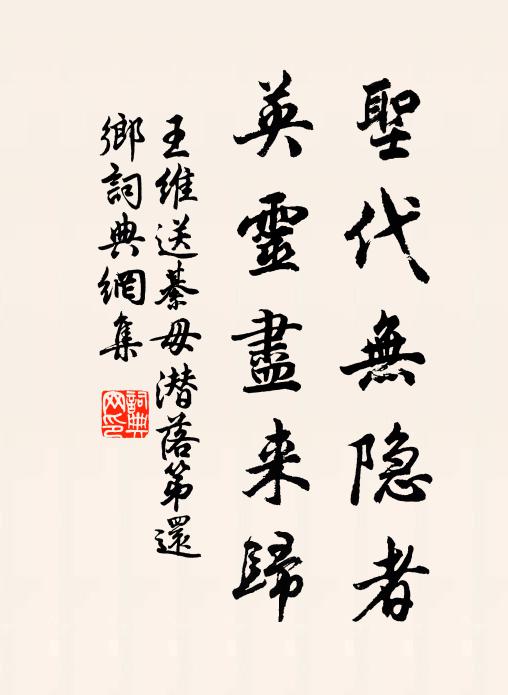 聖代無隐者
英靈盡来歸
王維送綦毋潜落第還
鄉詞典網集
詞典
网印